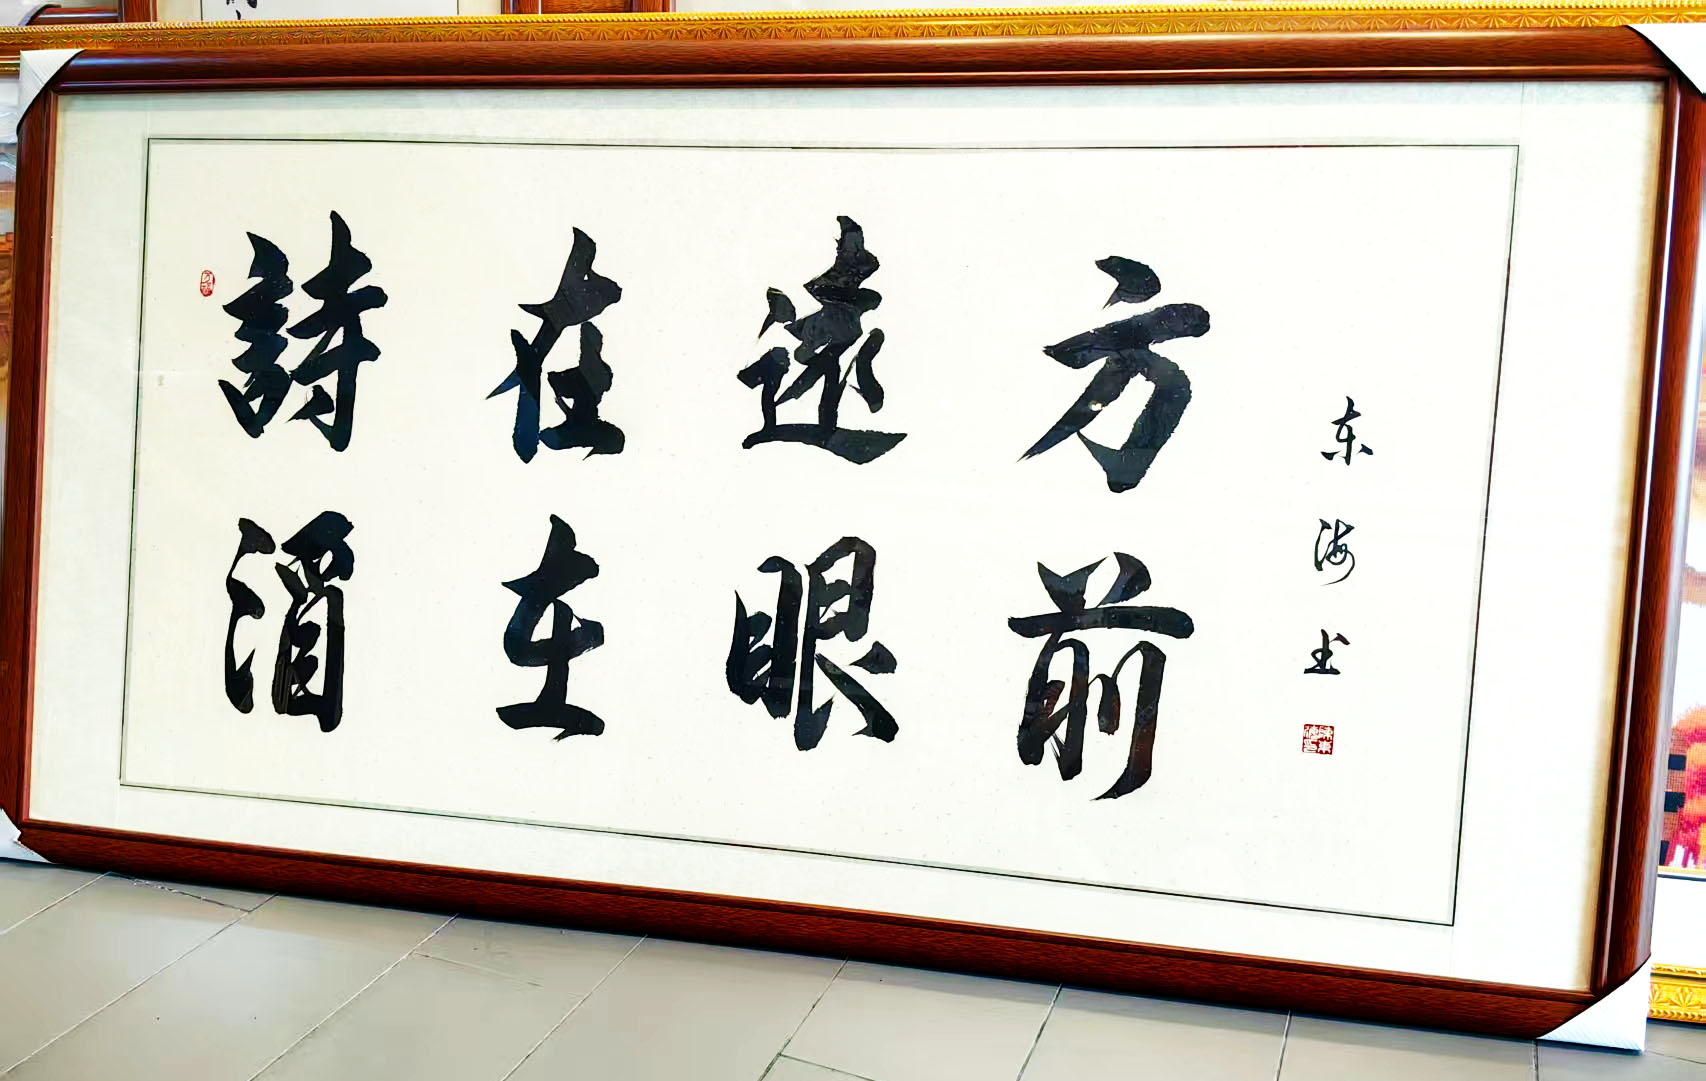 詩在遠方
酒在眼前
东海书